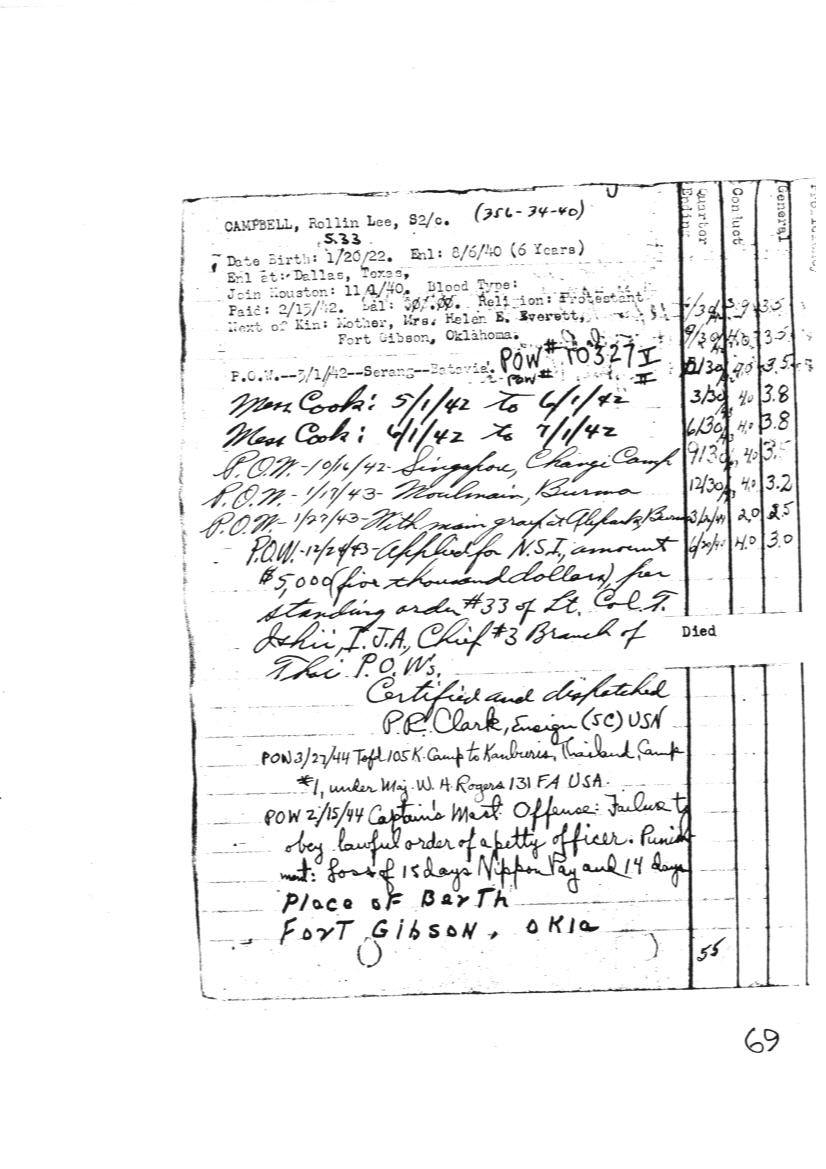 CAMPBELL, Rollin Lee, S2/c. (356-34-40)
S.33
Date Birth: 1/20/22. Enl: 8/6/40 (6 Years)
Enl at: Dallas, Texas,
Join Houston: 11/1/40. Blood Type:
Paid: 2/15/42. Bal: Religion: Protestant
Next of Kin: Mother, Mrs. Helen E. Everett,
Fort Gibson, Oklahoma.
P.O.W.--3/1/42--Serang--Batavia. POW # 10327 V
POW # II
Mess Cook: 5/1/42 to 6/1/42
Mess Cook: 6/1/42 to 7/1/42
P.O.W.-10/16/42-Singapore, Changi Camp
P.O.W.-1/17/43-Moulmain, Burma
P.O.W.-1/27/43-With main group at Burma
P.O.W.-12/24/43-Applied for N.S.I., amount
$5,000 (five thousand dollars), per
standing order #33 of Lt. Col. T.
Ishii, I.J.A., Chief #3 Branch of
Thai P.O.W's.
Certified and dispatched
P.R. Clark, Ensign (SC) USN
POW 3/27/44 Tsfd 105 K. Camp to Kanburis, Thailand, Camp
#1, under Maj. W. H. Rogers 131 FA USA.
POW 2/15/44 Captain's Mast. Offense: Failure to
obey lawful order of a petty officer. Punish-
ment: Loss of 15 days Nippon Pay and 14 days
Place of Berth
Fort Gibson, Okla
( ) )
Quarter Ending Conduct General
9/30 4.0 3.5
3/30 4.0 3.8
6/30 4.0 3.8
9/30 4.0 3.5
12/30 4.0 3.2
2.0 2.5
4.0 3.0
Died
55
69